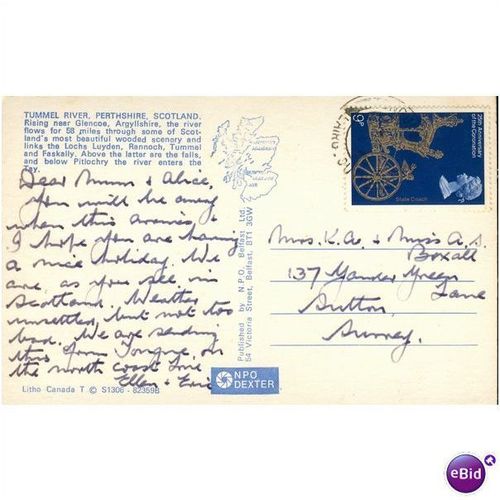 TUMMEL RIVER, PERTHSHIRE, SCOTLAND.
Rising near Glencoe, Argyllshire, the river
flows for 58 miles through some of Scot-
land's most beautiful wooded scenery and
links the Lochs Luyden, Rannoch, Tummel
and Faskally. Above the latter are the falls,
and below Pitlochry the river enters the
Tay.
Dear Mum & Alice,
You will be away
when this arrives &
I hope you are having
a nice holiday. We
are as you see in
Scotland. Weather
unsettled, but not too
bad. We are sending
this from Tongue, on
the north coast love
Ellen & Eric
Litho Canada T © S1306 - 82359B
Published by N.P.O. Belfast Ltd.
54 Victoria Street, Belfast, BT1 3GW
NPO
DEXTER
LAIRG
9P
25th Anniversary
of the Coronation
State Coach
Mrs. K.A. & Miss A.S.
Boxall
137 Gander Green
Lane
Sutton
Surrey.
eBid